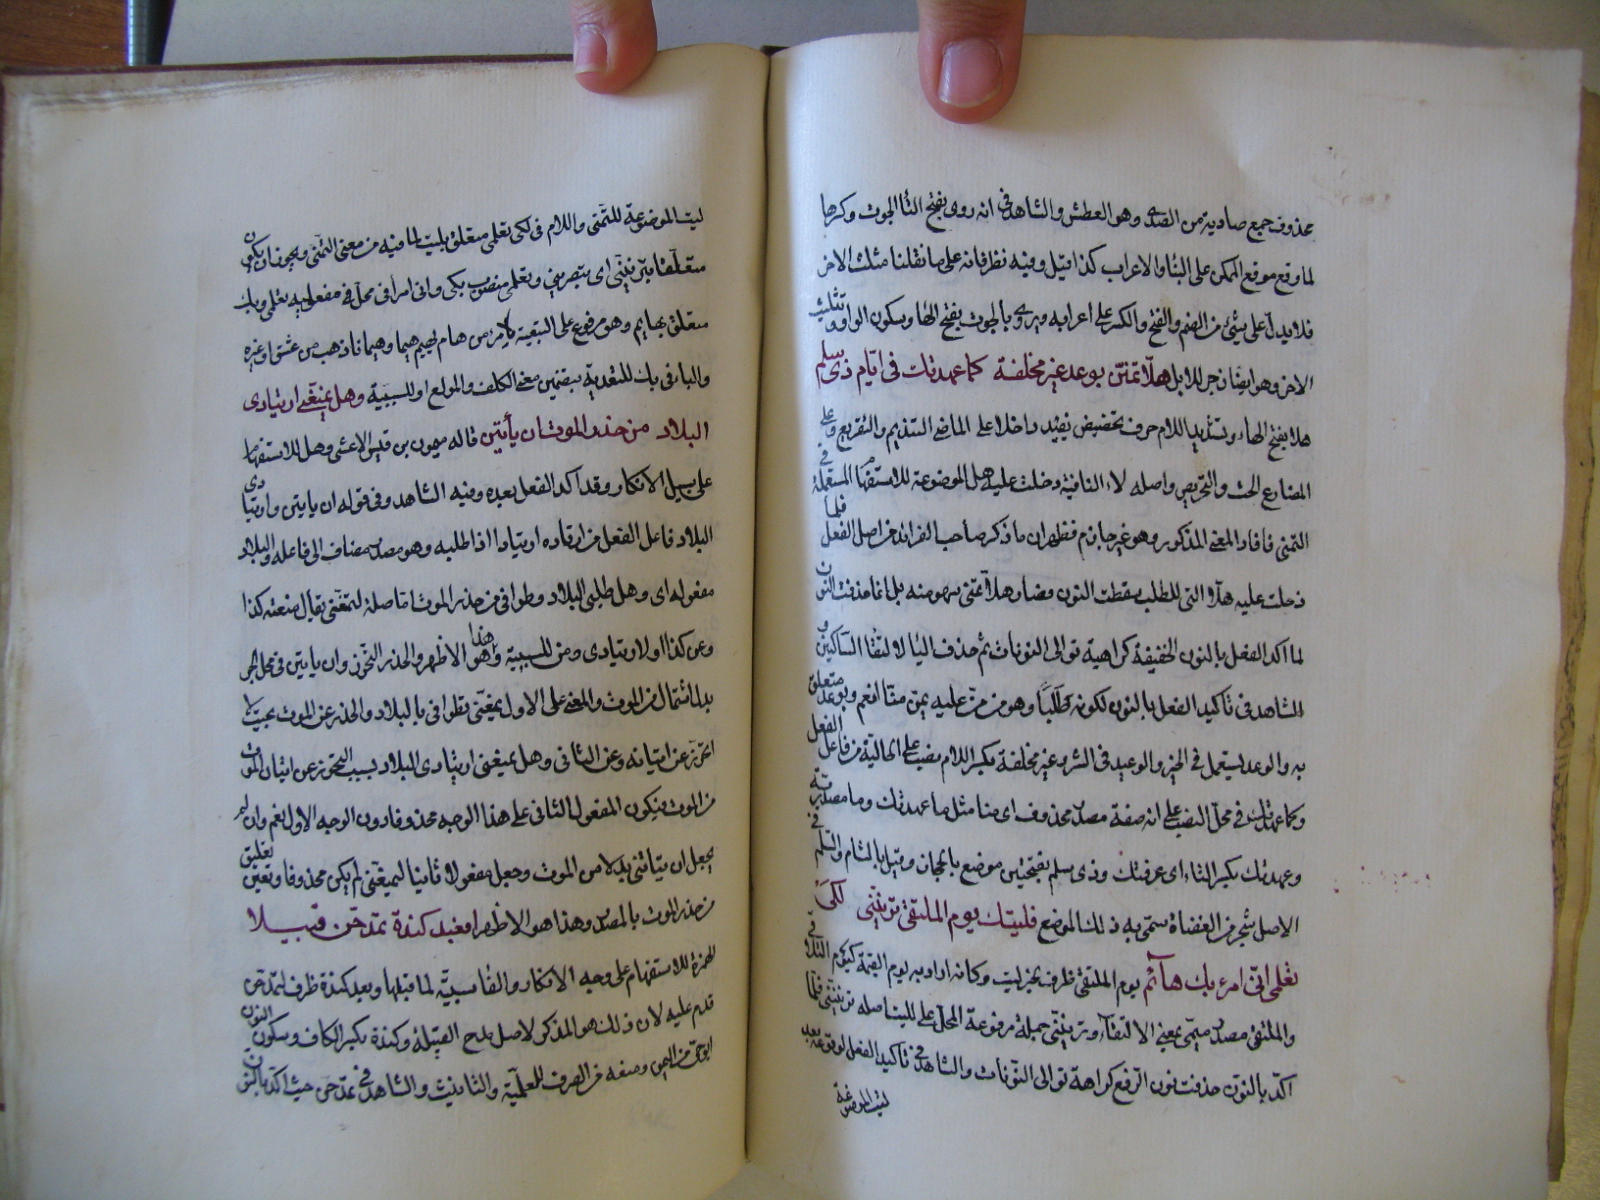 محذوف جمع صادية من الصدى وهو العطش والشاهد فى انه روى بفتح التا الجوت وكسرها
لما وقع موقع المتمكن على البنا والاعراب كذا قيل وفيه نظر فانه على ما نقلنا مثلث الاخر
فلا يدل على شئ من الضم والفتح والكسر على اعرابه ويروى بالجوت بفتح الها وسكون الواو وتثليث
الاخر وهو ايضا زجر للابل هلا تمنن بوعد غير مخلفة كما عهدتك فى ايام ذى سلم
هلا بفتح الهاء وتشديد اللام حرف تحضيض يفيد داخلا على الماضى التنديم والتقريع وعلى
المضارع الحث والتحريض واصله لاء النافية دخلت عليه هل الموضوعة للاستفهام المستعملة فى
التمنى فافاد المعنى المذكور وهو غير جازم فظهر ان ما ذكر صاحب الفرائد من اصل الفعل فلما
دخلت عليه هلا التى للطلب سقطت النون فصار هلا تمنى سهو منه بل انما حذفت النون
لما اكد الفعل بالنون الخفيفة كراهية توالى النونات ثم حذف اليا لالتقا الساكنين و
الشاهد فى تاكيد الفعل بالنون لكونه طلبا وهو من من عليه يمن منا انعم وبوعد متعلق
به والوعد يستعمل فى الخير والوعيد فى الشر وغير مخلفة بكسر اللام نصب على الحالية من فاعل الفعل
وكما عهدتك فى محل النصب على انه صفة مصدر محذوف اى منا مثل ما عهدتك وما مصدرية
وعهدتك بكسر التاء اى عرفتك وذى سلم بفتحتين موضع بالحجاز وقيل بالشام والسلم فى
الاصل شجر من العضاة سمى به ذلك الموضع فليتك يوم الملتقى ترينّنى لكى
تعلمى انى امرء بك هائم يوم الملتقى ظرف بخبر ليت وكانه اراد به يوم القيمة كيوم التلاق
والملتقى مصدر ميمى بمعنى الالتقآء وترينّنى جملة مرفوعة المحل على لليت اصله ترينّنى فلما
اكد بالنون حذفت نون الرفع كراهة توالى النونات والشاهد فى تاكيد الفعل لوقوعه بعد
ليت الموضوعة
ليت الموضوعة للتمنى واللام فى لكى تعلمى متعلق بليت لما فيه من معنى التمنى ويجوز ان يكون
متعلقا بترينّنى اى تبصرينى وتعلمى منصوب بكى وانى امرء فى محل فى مفعوليه تعلمى وبك
متعلق بهايم وهو مرفوع على التبعية لامرء من هام يهيم هيما وهيمانا ذهب من عشق او غيره
والباء فى بك للتعدية بتضمين معنى الكلف والمولع او للسببية وهل يمنعنى ارتيادى
البلاد من حذر الموت ان يأتين قاله ميمون بن قيس الاعشى وهل للاستفهام
على سبيل الانكار وقد اكد الفعل بعده وفيه الشاهد وفى قوله ان ياتين وارتيادى
البلاد فاعل الفعل من ارتاده ارتيادا اذا طلبه وهو مصدر مضاف الى فاعله والبلاد
مفعوله اى وهل طلبى البلاد وطوافى من حذر الموت ما صلة ليمنعنى يقال منعته كذا
وعن كذا او لارتيادى ومن للسببية وهذا هو الاظهر والحذر التحرز وان ياتين فى محل الجر
بدل اشتمال من الموت والمعنى على الاول يمنعنى تطوافى بالبلاد والحذر عن الموت بحيث لا
احترز عن اتيانه وعن الثانى وهل يمنعنى ارتيادى البلاد بسبب التحرز عن اتيان الموت
من الموت فيكون المفعول الثانى على هذا الوجه محذوفا دون الوجه الاول نعم وان لم
يجعل ان ياتنى بدلا من الموت وجعل مفعولا ثانيا ليمنعنى لم يكن محذوفا وتعين تعليق
من حذر الموت بالمصدر وهذا هو الاظهر افبعد كندة تمدحن قبيلا
الهمزة للاستفهام على وجه الانكار والفا سببية لما قبلها وبعد كندة ظرف لتمدحن
قدم عليه لان ذلك هو المذكر لاصل مدح القبيلة وكندة بكسر الكاف وسكون النون
ابو حى من اليمن ومنعه من الصرف للعلمية والتانيث والشاهد فى تمدحن حيث اكد بالنون